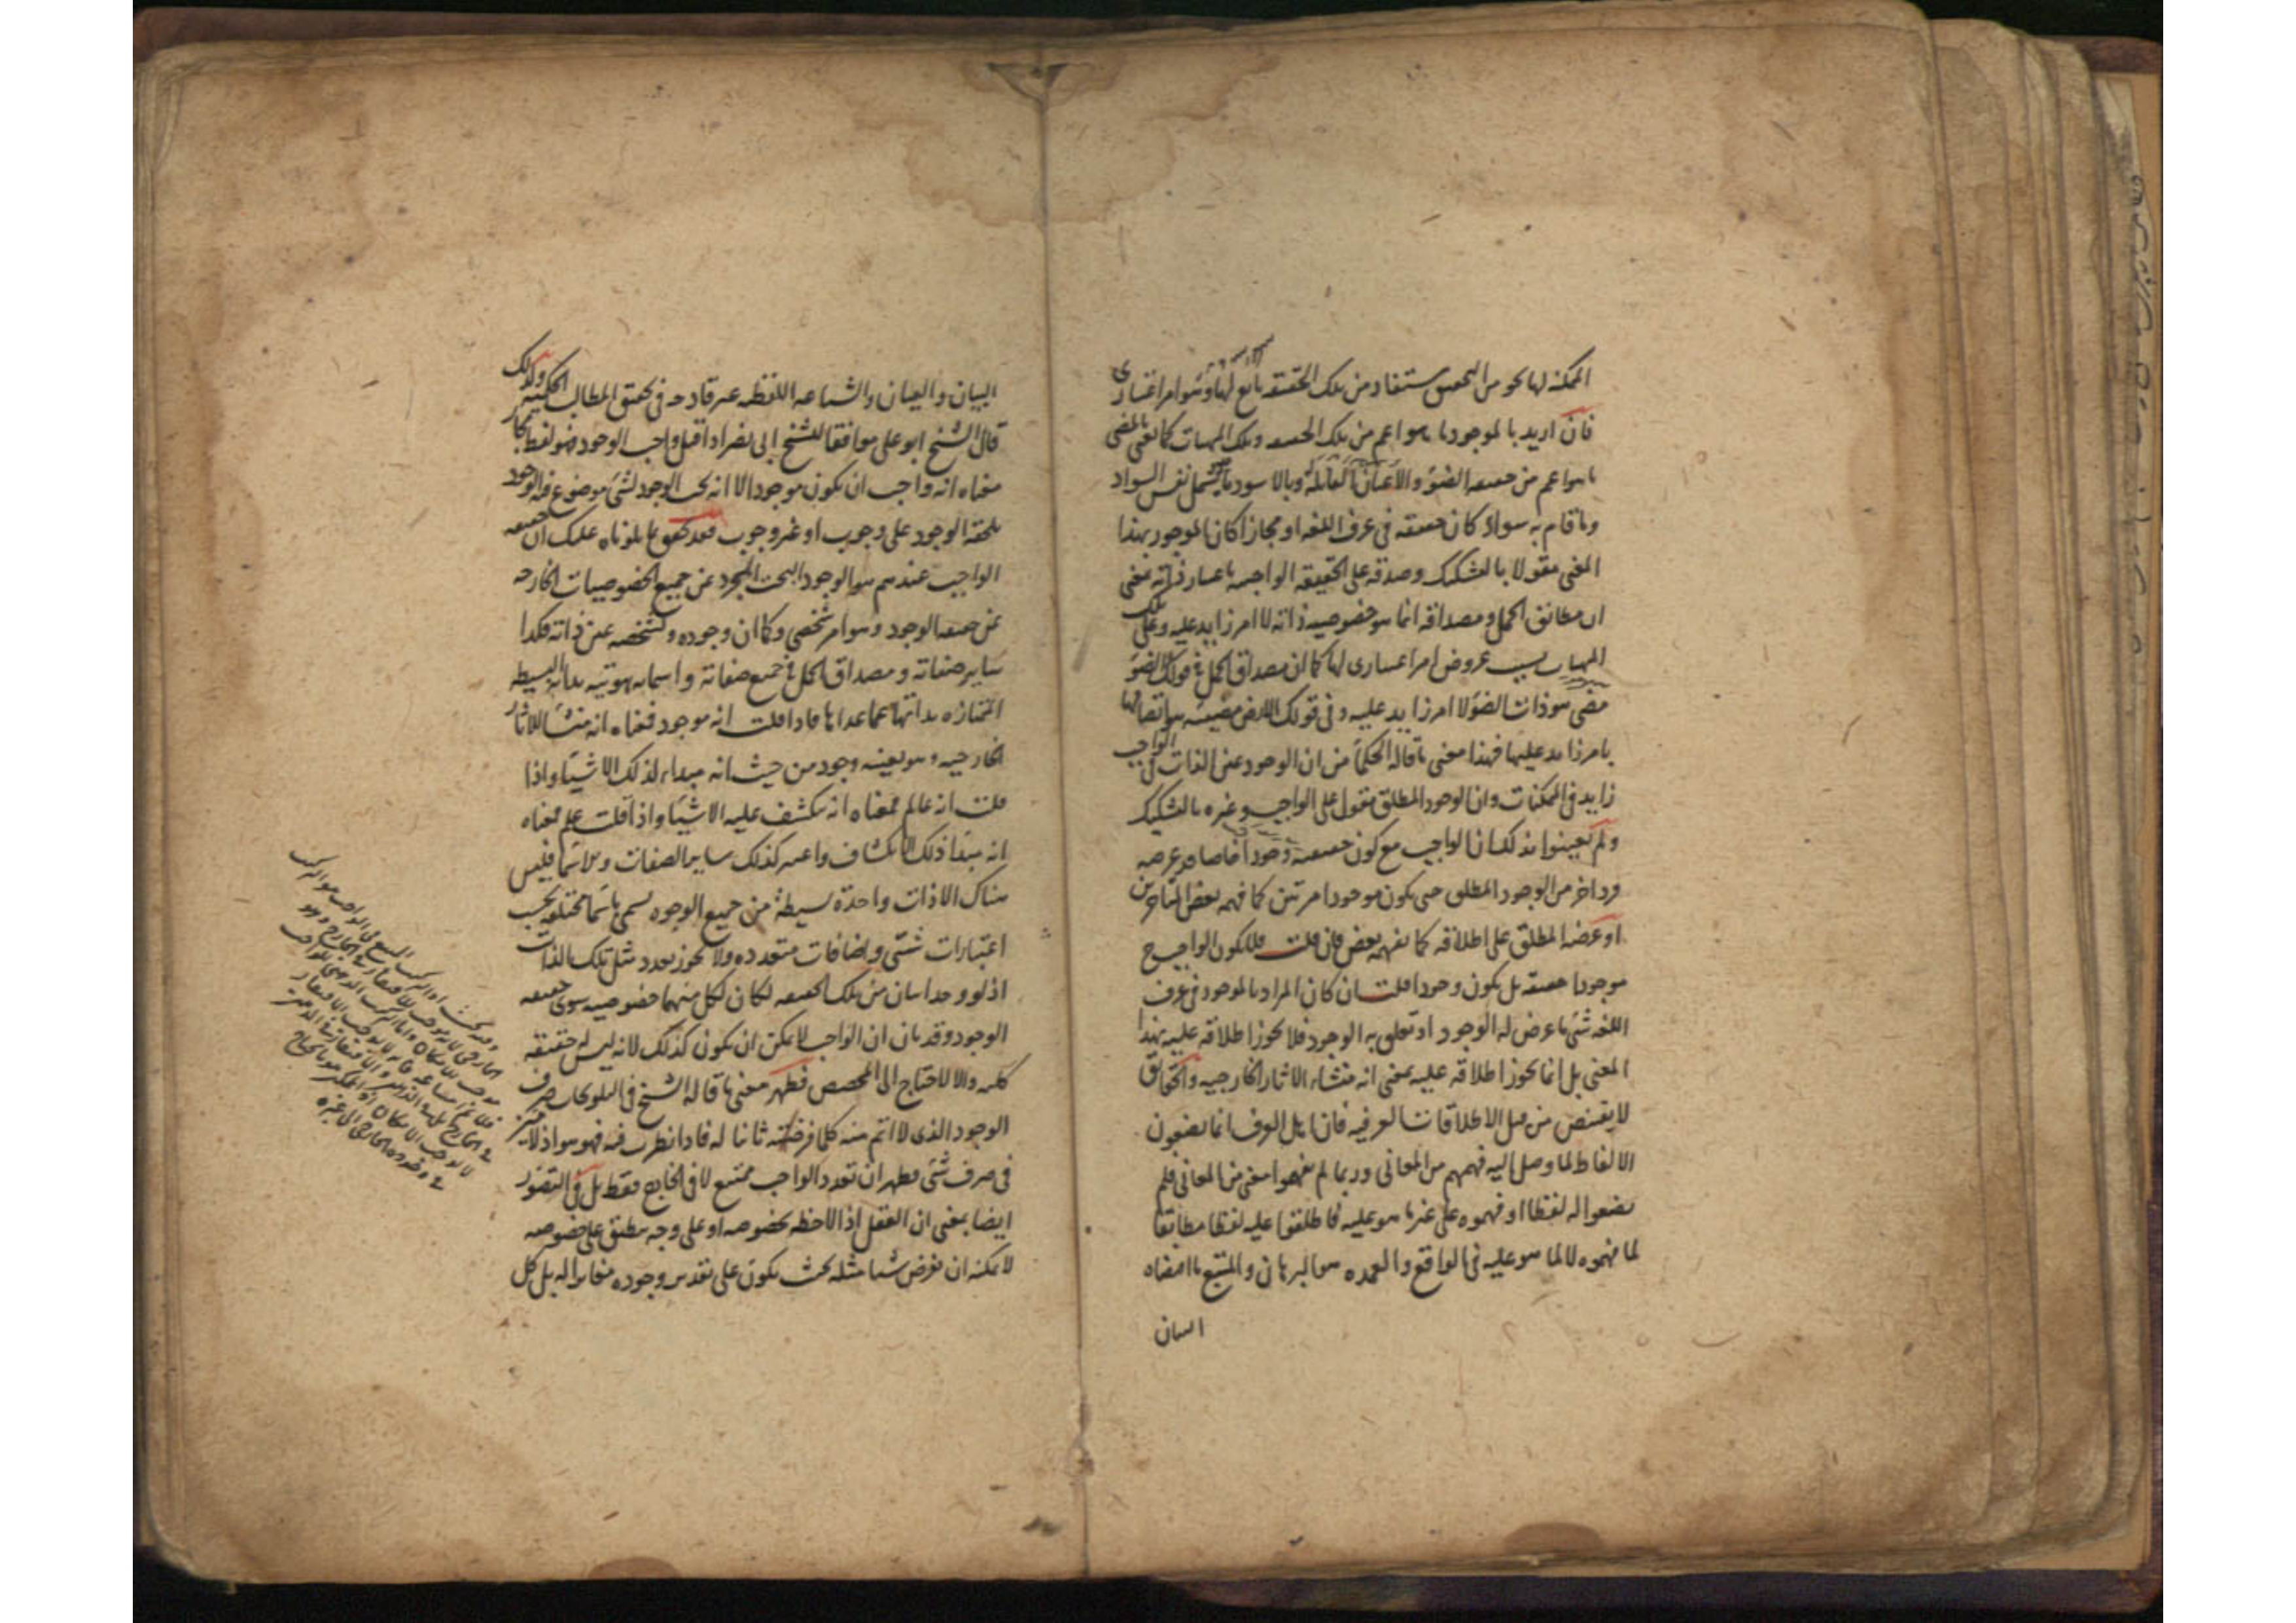 الممكنة لها نحو من التحصيل مستفاد من تلك الحقيقة تابع لها وهو امر اعتباري
فان اريد بالموجود ما هو اعم من تلك الحقيقة وتلك المهيات كما يعنى بالمضى
ما هو اعم من حقيقة الضوء والأعيان القابلة له وبالاسود ما يشمل نفس السواد
وما قام به سواد كان حقيقة في عرف اللغة او مجازا كان الموجود بهذا
المعنى مقولا بالتشكيك وصدقه على الحقيقة الواجبة باعتبار ذاته بمعنى
ان مطابق الحمل ومصداقه انما هو خصوصية ذاته لا امر زايد عليه وعلى تلك
المهيات بسبب عروض امر اعتبارى لها كما ان مصداق الحمل في قولك الضوء
مضى هو ذات الضوء لا امر زايد عليه وفى قولك الارض مضيئة هو اتصافها
بامر زايد عليها فهذا معنى ما قاله الحكماء من ان الوجود عين الذات في الواجب
زايد في الممكنات وان الوجود المطلق مقول على الواجب وغيره بالتشكيك
ولم يعينوا بذلك ان الواجب مع كون حقيقته وجودا خاصا قد عرضه
فرد اخر من الوجود المطلق حتى يكون موجودا مرتين كما فهمه بعض المتأخرين
او عرضه المطلق على اطلاقه كما يفهمه بعض فان قلت فلا يكون الواجب ح
موجودا حقيقة بل يكون وجودا قلت ان كان المراد بالموجود في عرف
اللغة شئ ما عرض له الوجود او تعلق به الوجود فلا يجوز اطلاقه عليه بهذا
المعنى بل انما يجوز اطلاقه عليه بمعنى انه منشاء الاثار الخارجية والحقائق
لا يقتنص من قبل الاطلاقات العرفية فان اهل العرف انما يضعون
الالفاظ لما وصل اليه فهمهم من المعانى وربما لم يفهموا معنى من المعانى فلم
يضعوا له لفظا او فهموه على غير ما هو عليه فاطلقوا عليه لفظا مطابقا
لما فهموه لا لما هو عليه في الواقع والعمدة هو البرهان والمتبع ما اقتضاه
البيان
البيان والعيان والشناعة اللفظية غير قادحة في تحقيق المطالب الحكمية ولذلك
قال الشيخ ابو على موافقا للشيخ ابى نصر اذا قيل واجب الوجود فهو لفظ مجاز
معناه انه واجب ان يكون موجودا لا انه يجب الوجود لشئ موضوع فيه الوجود
يلحقه الوجود على وجوب او غير وجوب فقد تحقق بما تلوناه عليك ان حقيقة
الواجب عندهم هو الوجود البحت المجرد عن جميع الخصوصيات الخارجة
عن حقيقة الوجود وهو امر شخصي وكما ان وجوده وتشخصه عين ذاته فكذا
ساير صفاته ومصداق الحمل في جميع صفاته واسمائه هويته بذاته البسيطة
الممتازة بذاتها عما عداها فاذا قلت انه موجود فمعناه انه منشأ للاثار
الخارجية وهو بعينه وجود من حيث انه مبداء لذلك الاشياء واذا
قلت انه عالم فمعناه انه ينكشف عليه الاشياء واذا قلت علم فمعناه
انه مبدأ ذلك الانكشاف واعتبر كذلك ساير الصفات والاسماء فليس
هناك الا ذات واحدة بسيطة من جميع الوجوه يسمى باسماء مختلفة بحسب
اعتبارات شتى واضافات متعددة ولا يجوز تعدد مثل تلك الذات
اذ لو وجد اثنان من تلك الحقيقة لكان لكل منهما خصوصية سوى حقيقة
الوجود وقد بان ان الواجب لا يمكن ان يكون كذلك لانه ليس له حقيقة
كلية والا لاحتاج الى المخصص فظهر معنى ما قاله الشيخ في التلويحات صرف
الوجود الذى لا اتم منه كلما فرضته ثانيا له فاذا نظرت فيه فهو هو اذ لا ميز
في صرف شئ فظهر ان تعدد الواجب ممتنع لا في الخارج فقط بل في التصور
ايضا بمعنى ان العقل اذا لاحظه بخصوصه او على وجه ينطبق على خصوصه
لا يمكنه ان يفرض شيئا مثله بحيث يكون على تقدير وجوده مغايرا له بل كل